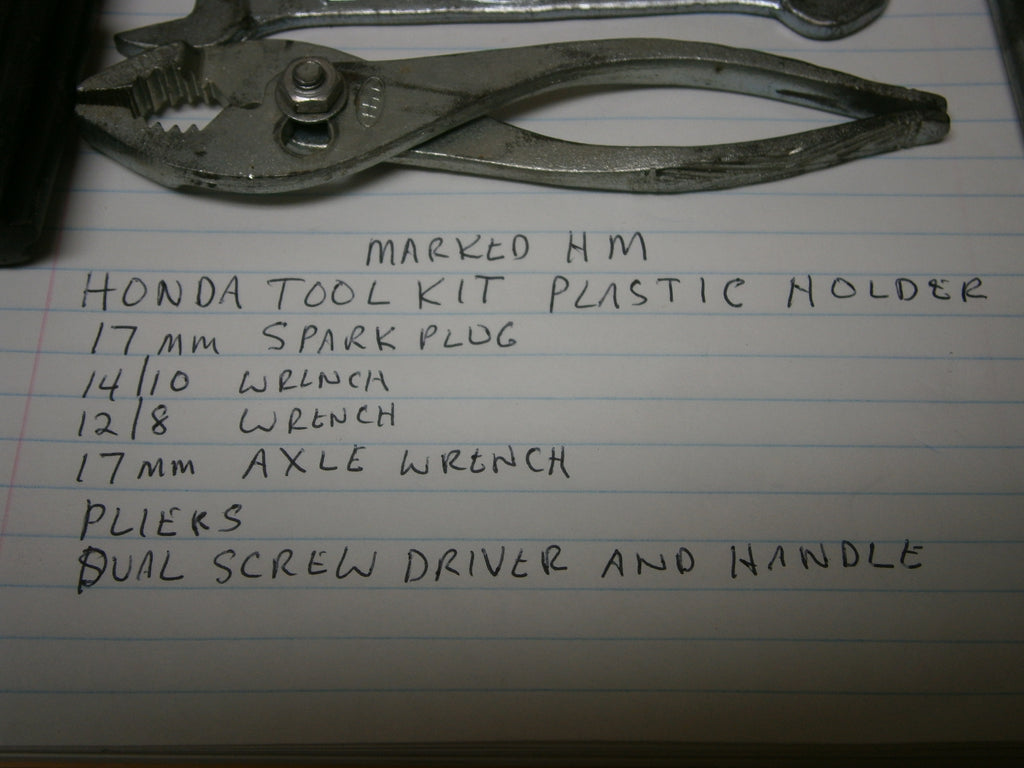 MARKED HM
HONDA TOOL KIT PLASTIC HOLDER
17 mm SPARK PLUG
14/10 WRENCH
12/8 WRENCH
17 mm AXLE WRENCH
PLIERS
DUAL SCREW DRIVER AND HANDLE